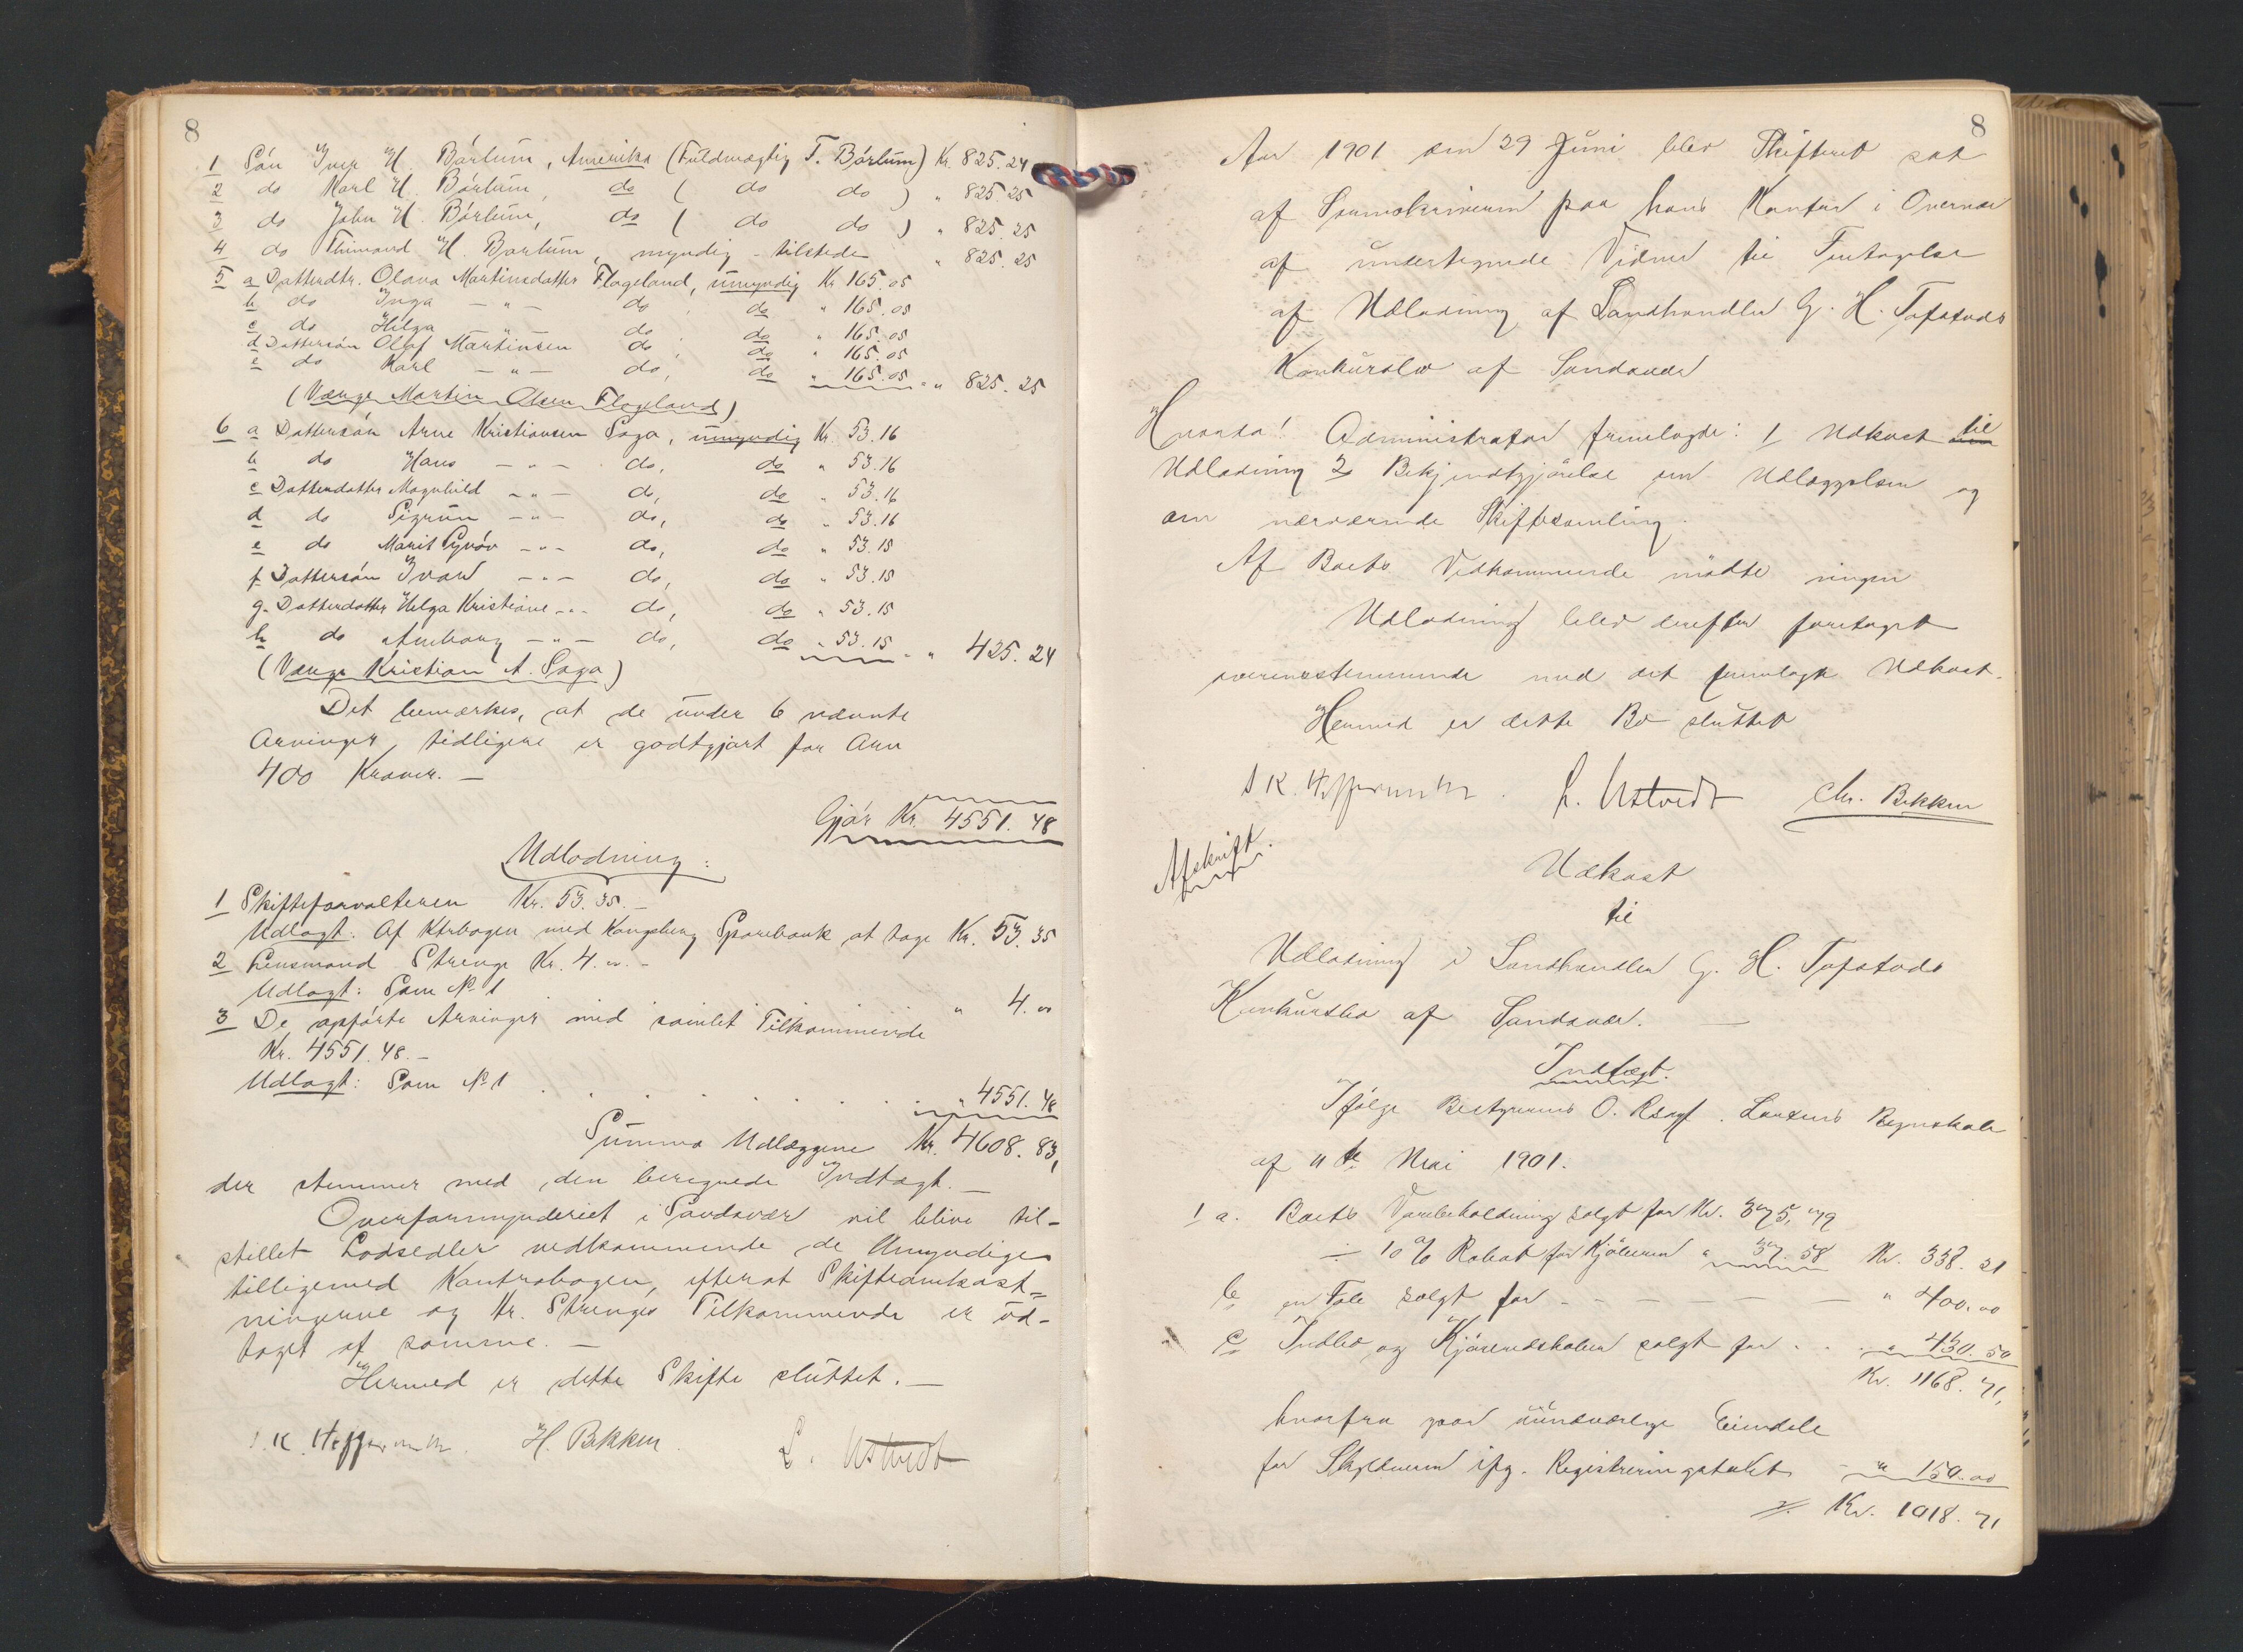 8
1 Sön Iver H. Börtum, Amerika (Fuldmægtig T. Börtum) Kr. 825.24
2 do Karl H. Börtum, do ( do do ) " 825.25
3 do John H. Börtum, do ( do do ) " 825.25
4 do Thimand H. Bortum, myndig - tilstede " 825.25
5 a Datterdtr. Olava Martinsdatter Flageland, umyndig Kr 165.05
b do Inga — " — do , do " 165.05
c do Helga " do do " 165.05
d Dattersön Olaf Martinsen do , do " 165.05
e do Karl — " — do, do " 165.05 - " 825.25
(Værge Martin Olsen Flageland)
6 a Dattersön Arne Kristiansen Saga, umyndig Kr. 53.16
b do Hans — " — do, do " 53.16
c Datterdatter Magnhild — " — do, do " 53.16
d do Sigrun — " — do, do " 53.16
e do Marit Synöv — " — do, do " 53.15
f Dattersön Ivar — " — do, do " 53.15
g. Datterdatter Helga Kristiane - " - do, do " 53.15
h do Anborg — " — do, do " 53.15 - " 425.24
(Værge Kristian A. Saga)
Det bemærkes, at de under 6 nævnte
Arvinger tidligere er godtgjort for Arv
400 Kroner. —
Gjör Kr. 4551.48
Udlodning:
1 Skifteforvalteren Kr. 53.35. —
Udlagt: Af Ktrbogen med Kongsberg Sparebank at tage Kr. 53.35
2 Lensmand Strenge Kr. 4.00. -
Udlagt: Som No 1 " 4.00
3 De opförte Arvinger med samlet Tilkommende
Kr. 4551.48. -
Udlagt: Som No 1 . . . . . . . . " 4551.48
Summa Udlæggene Kr. 4608.83,
der stemmer med den beregnede Indtægt. —
Overformynderiet i Sandsvær vil blive til-
stillet Lodsedler vedkommende de Umyndige
tilligemed Kontrabogen, efterat Skifteomkost=
ningerne og Hr. Strenges Tilkommende er ud-
taget af samme. —
Hermed er dette Skifte sluttet. —
J. K. H. Bekken. L. Ustvedt
8
Aar 1901 den 29 Juni blev Skifteret sat
af Sorenskriveren paa hans Kontor i Overvær
af undertegnede Vidner til Foretagelse
af Udlodning af Landhandler G. H. Tofstads
Konkursbo af Sandsvær
Hvorda! Administrator fremlagde: 1 Udkast til
Udlodning 2 Bekjendtgjörelse om Udlæggelsen og
om nærværende Skiftesamling.
Af Boets Vedkommende mödte ingen
Udlodning blev derefter foretaget
overensstemmende med det fremlagte Udkast.
Hermed er dette Bo sluttet
J. K. L. Ustvedt Chr. Bekken
Afskrift.
Udkast
til
Udlodning i Landhandler G. H. Tofstads
Konkursbo af Sandsvær. —
Indtægt.
Ifölge Bestyrerens O. Rsagf. Larsens Regnskab
af 11te Mai 1901.
1 a. Boets Varebeholdning solgt for Kr. 375,79
÷ 10 % Rabat for Kjöberen " 37.58 Kr. 338.21
b en Fole solgt for — — — — — " 400.00
c Indbo og Kjöreredskaber solgt for . . . " 430.50
Kr. 1168.71,
hvorfra gaar uundværlige Eiendele
for Skyldneren ifg. Registreringstakst - " 150.00
Kr. 1018.71